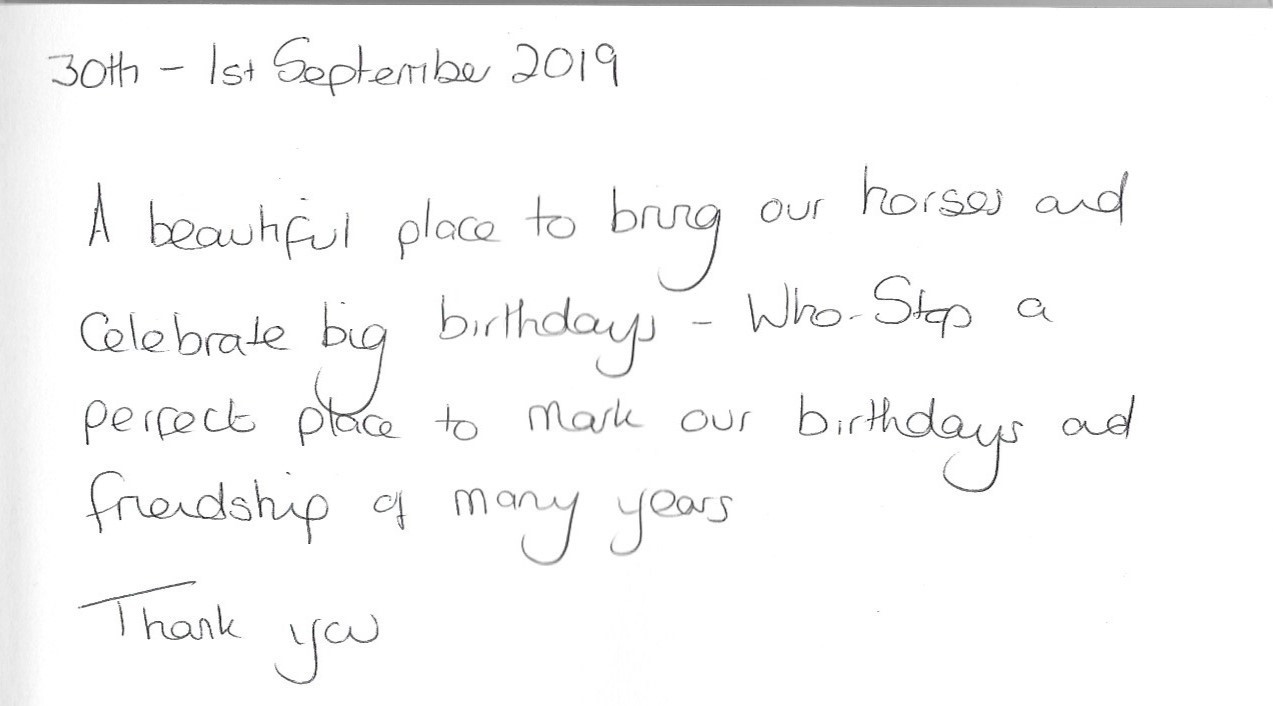 30th - 1st September 2019
A beautiful place to bring our horses and
Celebrate big birthdays - Who-Stop a
perfect place to mark our birthdays and
friendship of many years
Thank you